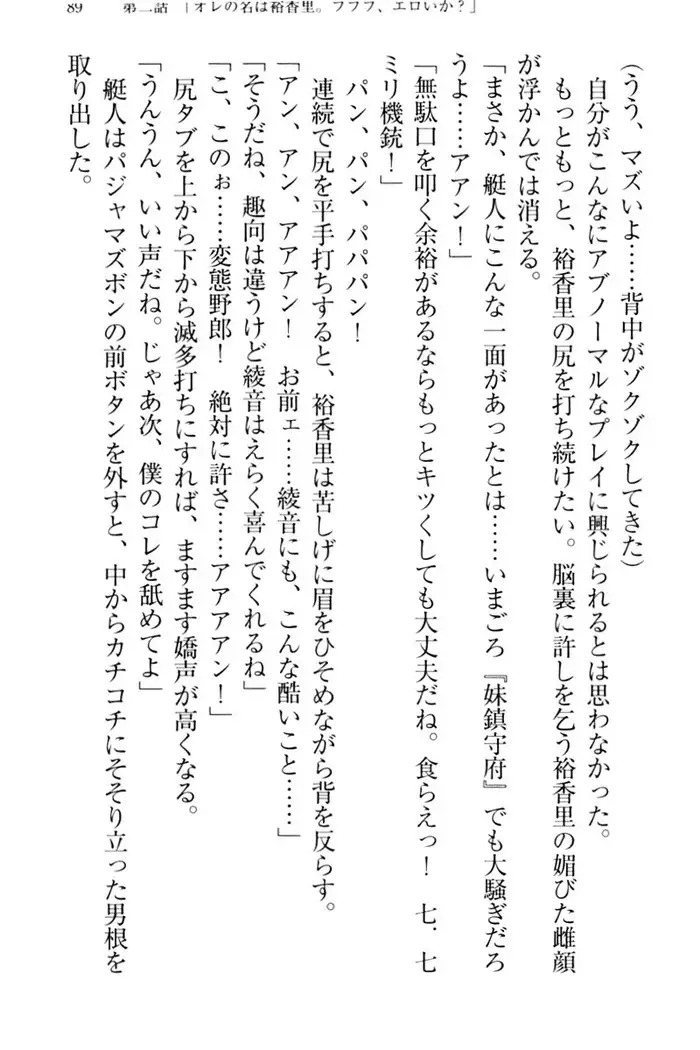 89　第二話　「オレの名は裕香里。フフフ、エロいか？」
（うう、マズいよ……背中がゾクゾクしてきた）
自分がこんなにアブノーマルなプレイに興じられるとは思わなかった。
もっともっと、裕香里の尻を打ち続けたい。脳裏に許しを乞う裕香里の媚びた雌顔
が浮かんでは消える。
「まさか、艇人にこんな一面があったとは……いまごろ『妹鎮守府』でも大騒ぎだろ
うよ……アアン！」
「無駄口を叩く余裕があるならもっとキツくしても大丈夫だね。食らえっ！　七．七
ミリ機銃！」
パン、パン、パパパン！
連続で尻を平手打ちすると、裕香里は苦しげに眉をひそめながら背を反らす。
「アン、アン、アアアン！　お前ェ……綾音にも、こんな酷いこと……」
「そうだね、趣向は違うけど綾音はえらく喜んでくれるね」
「こ、このぉ……変態野郎！　絶対に許さ……アアアアン！」
尻タブを上から下から滅多打ちにすれば、ますます嬌声が高くなる。
「うんうん、いい声だね。じゃあ次、僕のコレを舐めてよ」
艇人はパジャマズボンの前ボタンを外すと、中からカチコチにそそり立った男根を
取り出した。